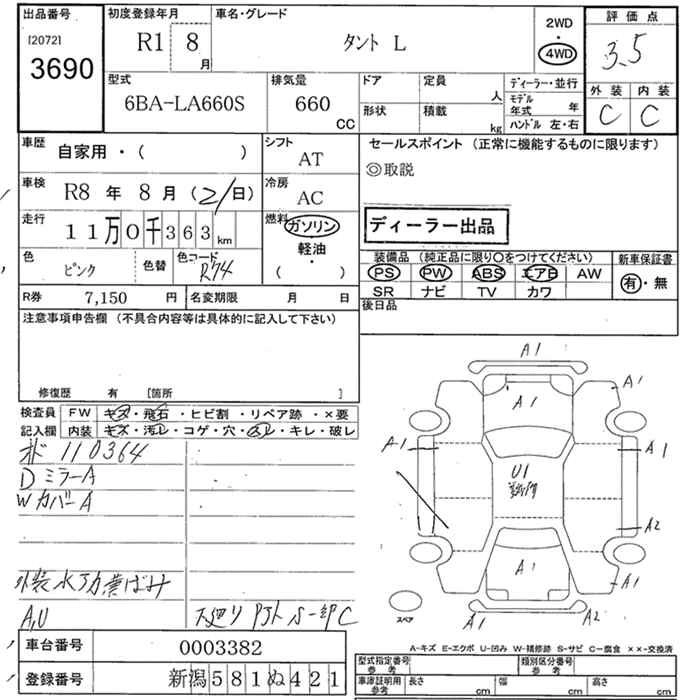 出品番号
[2072]
3690
初度登録年月
R1 8 月
車名・グレード
タント L
2WD
・
4WD
評価点
3.5
外装 内装
C C
型式
6BA-LA660S
排気量
660 CC
ドア
定員
人
形状
積載
kg
ディーラー・並行
モデル年式 年
ハンドル 左・右
車歴
自家用・( )
シフト
AT
セールスポイント (正常に機能するものに限ります)
◎取説
車検
R8 年 8 月 (21日)
冷房
AC
走行
11万0千363km
燃料
ガソリン
軽油
・
( )
ディーラー出品
色
ピンク
色替
色コード
R74
装備品 (純正品に限り○をつけてください)
PS PW ABS エアB AW
SR ナビ TV カワ
新車保証書
有・無
R券 7,150 円
名変期限 月 日
後日品
注意事項申告欄 (不具合内容等は具体的に記入して下さい)
修復歴 有 [箇所 ]
検査員記入欄
FW キズ・飛石・ヒビ割・リペア跡・×要
内装 キズ・汚レ・コゲ・穴・スレ・キレ・破レ
オド 110364
DミラーA
WカバーA
外装 水アカ 黄ばみ
A,U
下廻り S一部C
A1
A1
A1
A1
A1
U1
A2
A1
A1
A2
スペア
A-キズ E-エクボ U-凹み W-補修跡 S-サビ C-腐食 ××-交換済
車台番号 0003382
登録番号 新潟581ぬ421
型式指定番号 参考
類別区分番号 参考
車庫証明用 参考
長さ cm
幅 cm
高さ cm